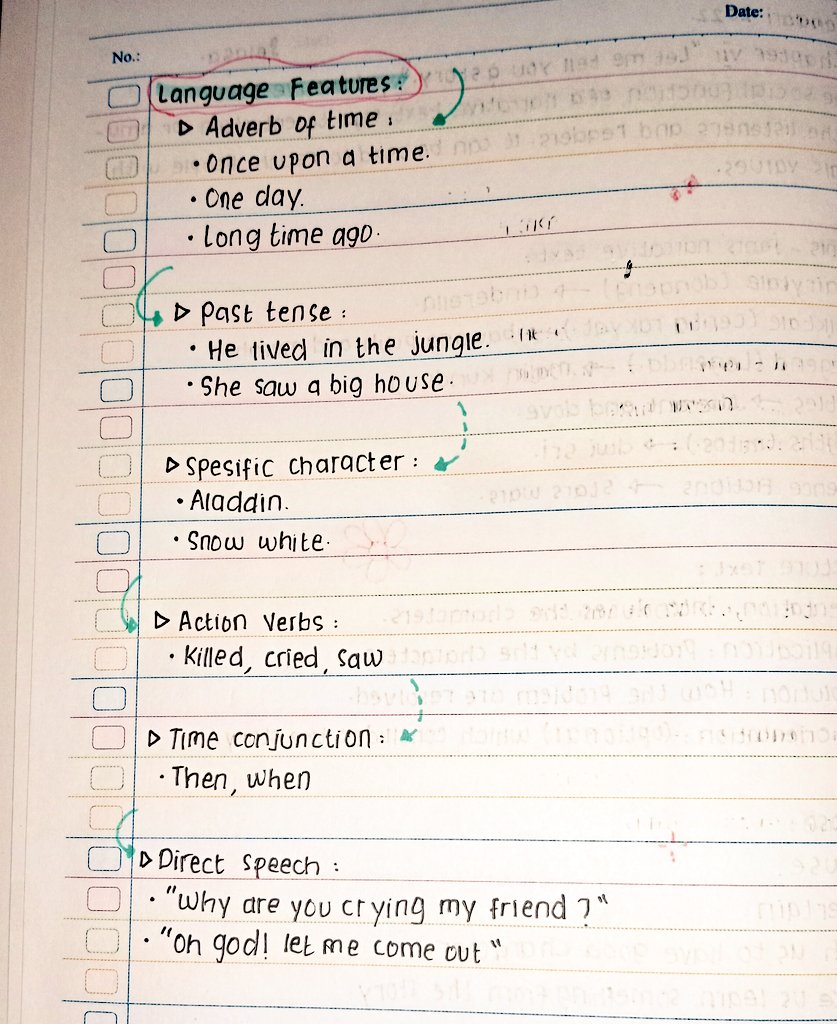 Date:
No.:
Language Features:
▷ Adverb of time:
• Once upon a time.
• One day.
• Long time ago.
▷ Past tense:
• He lived in the jungle.
• She saw a big house.
▷ Spesific character:
• Aladdin.
• Snow white.
▷ Action verbs:
• Killed, cried, saw
▷ Time conjunction:
• Then, when
▷ Direct speech:
• "Why are you crying my friend?"
• "Oh god! let me come out"